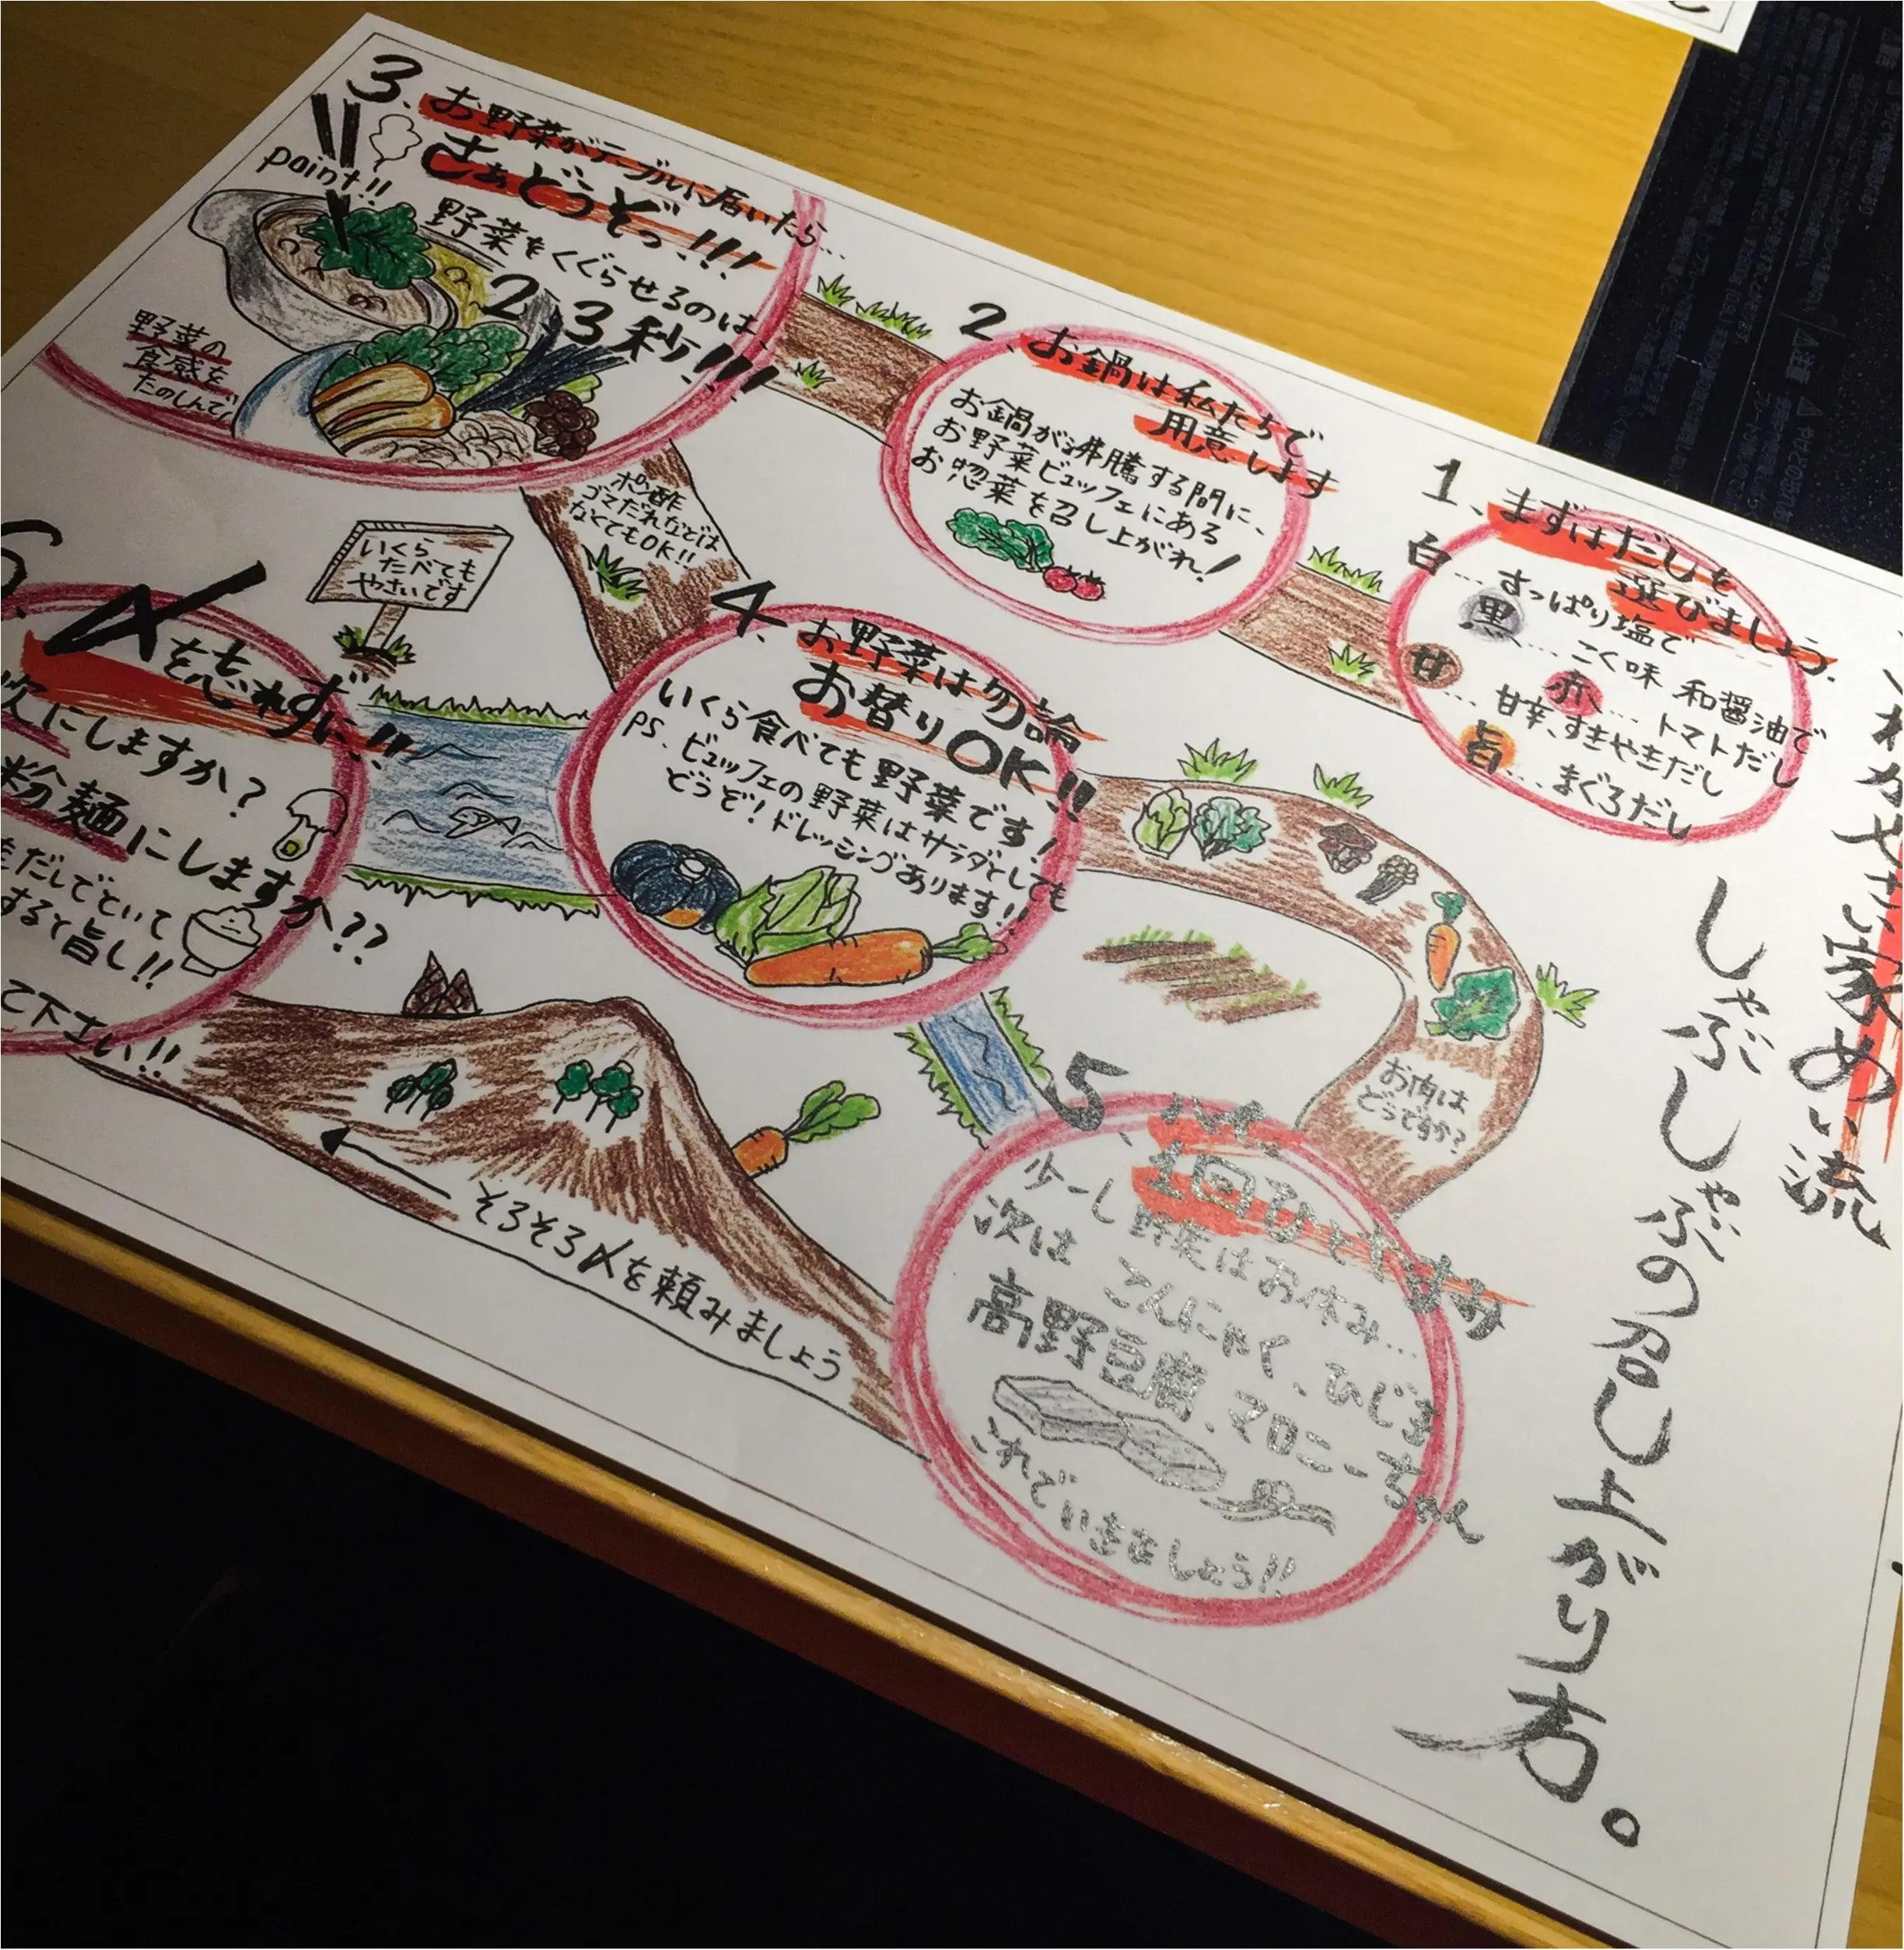 やさい家めい流
しゃぶしゃぶの召し上がり方。
1、まずはだしを
選びましょう。
白…さっぱり塩で
黒…こく味 和醤油で
赤…トマトだし
甘…甘辛、すきやきだし
旨…まぐろだし
2、お鍋は私たちで
用意します
お鍋が沸騰する間に、
お野菜ビュッフェにある
お惣菜を召し上がれ!
3、お野菜がテーブルに届いたら…
さぁどうぞっ!!!
point!!
野菜をくぐらせるのは、
2、3秒!!!
野菜の
食感を
たのしんで!
ポン酢
ゴマだれなどは
なくてもOK!!
いくら
たべても
やさいです
4、お野菜は勿論
お替りOK!!
いくら食べても野菜です!
ps、ビュッフェの野菜はサラダとしても
どうぞ!ドレッシングあります!!
お肉は
どうですか?
5、ハイ、
1回ひとやすみ
少ーし野菜はお休み…
次は こんにゃく、ひじき
高野豆腐、マロニーちゃん
これでいきましょう!!
そろそろ〆を頼みましょう
6、〆を忘れずに!!
にしますか?
粉麺にしますか??
だしでといて
すると旨し!!
て下さい!!